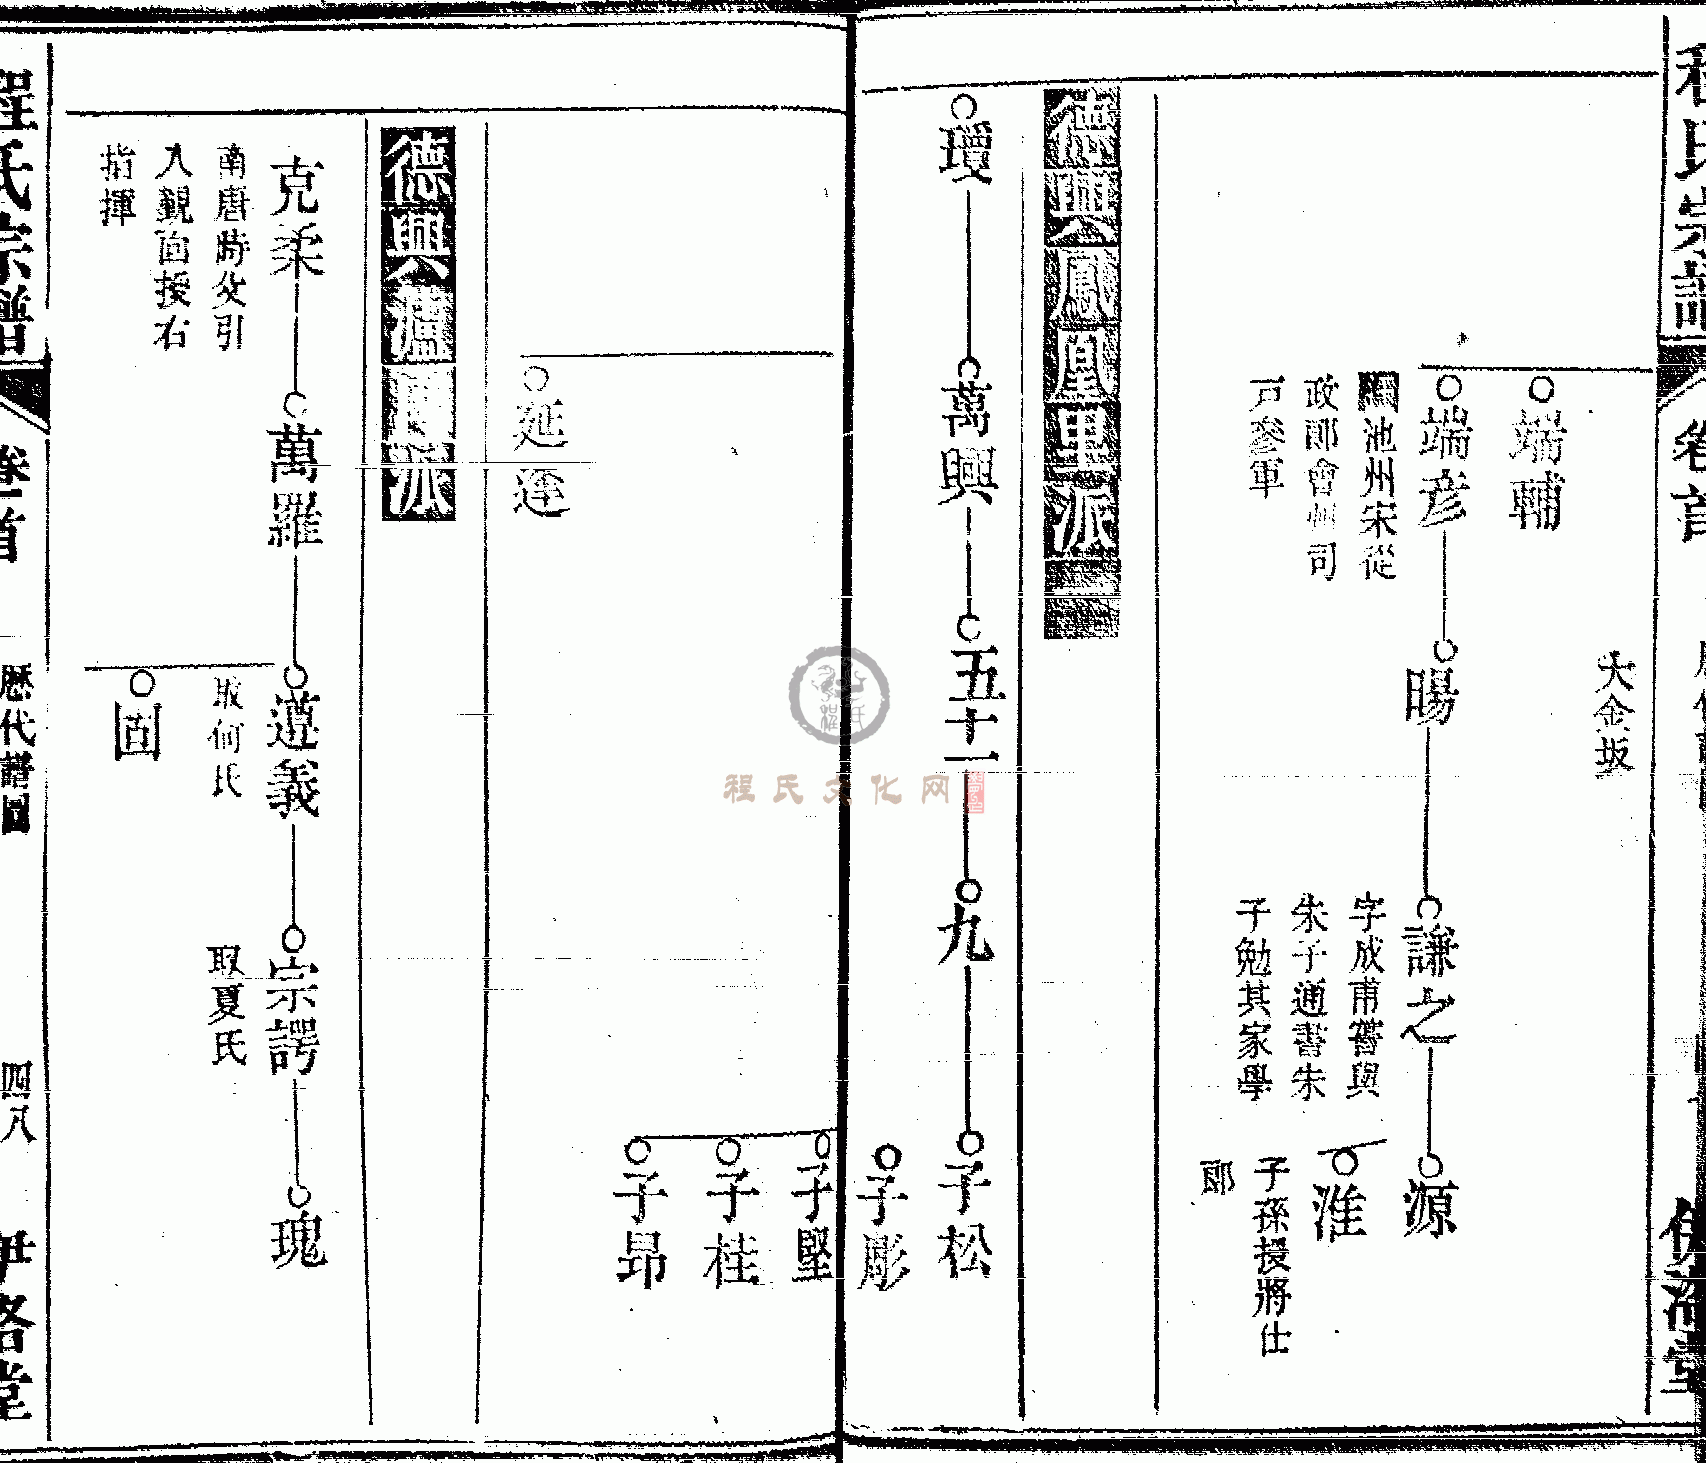 程氏宗譜
卷首
伊洛堂
大金坂
端輔
端彥
池州宋從
政郎會州司
戸參軍
暘
謙之
字成甫舊與
朱子通書朱
子勉其家學
源
淮
子孫授將仕
郎
德興鳳凰里派
瓊
萬興
五十一
九
子松
子彫
子堅
子桂
子昂
延逢
德興瀘
派
克柔
南唐時父引
入覲面授右
指揮
萬羅
遵義
取何氏
固
宗諤
取夏氏
瑰
程氏宗譜
卷首
歷代譜圖
四八
伊洛堂
程氏文化网